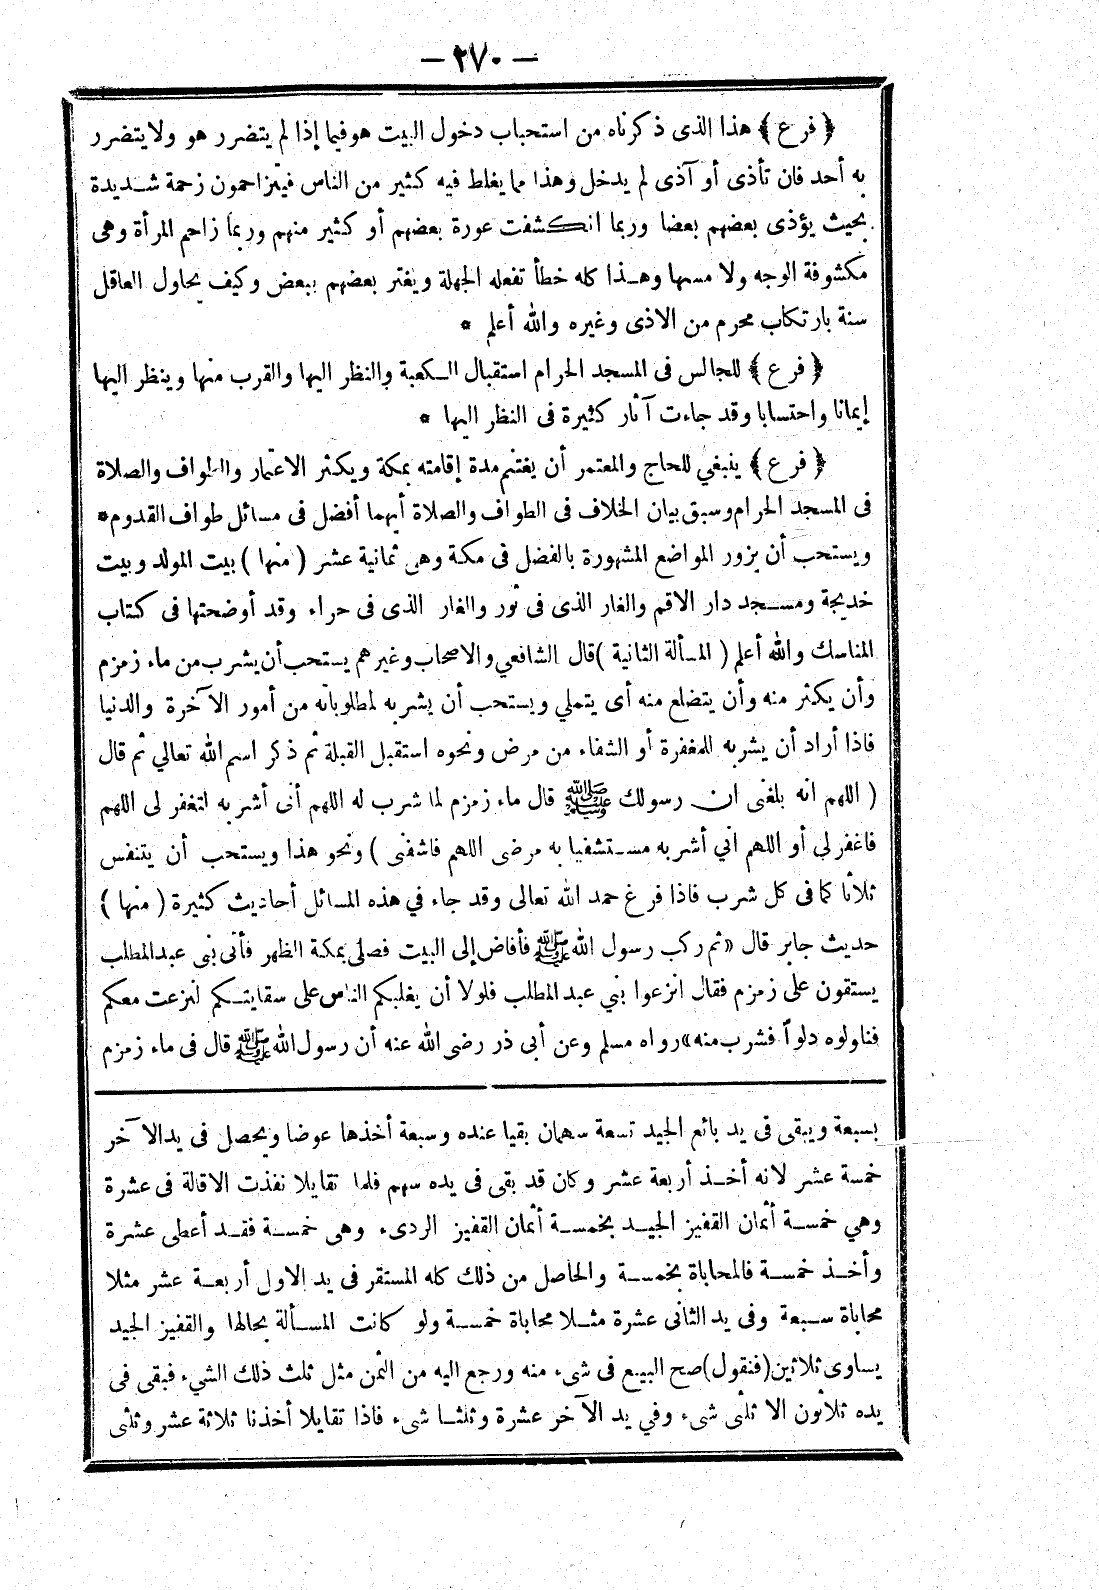 — ٢٧٠ —
﴿ فرع ﴾ هذا الذى ذكرناه من استحباب دخول البيت هو فيما إذا لم يتضرر هو ولا يتضرر
به أحد فان تأذى أو آذى لم يدخل وهذا مما يغلط فيه كثير من الناس فيتزاحمون زحمة شديدة
بحيث يؤذى بعضهم بعضا وربما انكشفت عورة بعضهم أو كثير منهم وربما زاحم المرأة وهى
مكشوفة الوجه ولا مسها وهذا كله خطأ تفعله الجهلة ويغتر بعضهم ببعض وكيف يحاول العاقل
سنة بارتكاب محرم من الاذى وغيره والله أعلم *
﴿ فرع ﴾ للجالس فى المسجد الحرام استقبال الكعبة والنظر اليها والقرب منها وينظر اليها
إيمانا واحتسابا وقد جاءت آثار كثيرة فى النظر اليها *
﴿ فرع ﴾ ينبغي للحاج والمعتمر أن يغتنم مدة إقامته بمكة ويكثر الاعتمار والطواف والصلاة
فى المسجد الحرام وسبق بيان الخلاف فى الطواف والصلاة أيهما أفضل فى مسائل طواف القدوم *
ويستحب أن يزور المواضع المشهورة بالفضل فى مكة وهى ثمانية عشر ( منها ) بيت المولد وبيت
خديجة ومسجد دار الاقم والغار الذى فى ثور والغار الذى فى حراء وقد أوضحتها فى كتاب
المناسك والله أعلم ( المسألة الثانية ) قال الشافعي والاصحاب وغيرهم يستحب أن يشرب من ماء زمزم
وأن يكثر منه وأن يتضلع منه أى يتملي ويستحب أن يشربه لمطلوباته من أمور الآخرة والدنيا
فاذا أراد أن يشربه للمغفرة أو الشفاء من مرض ونحوه استقبل القبلة ثم ذكر اسم الله تعالي ثم قال
( اللهم انه بلغنى ان رسولك ﷺ قال ماء زمزم لما شرب له اللهم أنى أشربه لتغفر لى اللهم
فاغفر لى أو اللهم اني أشربه مستشفيا به مرضى اللهم فاشفنى ) ونحو هذا ويستحب أن يتنفس
ثلاثا كما فى كل شرب فاذا فرغ حمد الله تعالى وقد جاء في هذه المسائل أحاديث كثيرة ( منها )
حديث جابر قال «ثم ركب رسول الله ﷺ فأفاض إلى البيت فصلى بمكة الظهر فأتى بنى عبد المطلب
يستقون على زمزم فقال انزعوا بني عبد المطلب فلولا أن يغلبكم الناس على سقايتكم لنزعت معكم
فناولوه دلواً فشرب منه» رواه مسلم وعن أبى ذر رضى الله عنه أن رسول الله ﷺ قال فى ماء زمزم
بسبعة ويبقى فى يد بائع الجيد تسعة سهمان بقيا عنده وسبعة أخذها عوضا ويحصل فى يد الآخر
خمسة عشر لانه أخذ أربعة عشر وكان قد بقى فى يده سهم فلما تقايلا نفذت الاقالة فى عشرة
وهي خمسة أثمان القفيز الجيد بخمسة أثمان القفيز الردىء وهى خمسة فقد أعطى عشرة
وأخذ خمسة فالمحاباة بخمسة والحاصل من ذلك كله المستقر فى يد الاول أربعة عشر مثلا
محاباة سبعة وفى يد الثانى عشرة مثلا محاباة خمسة ولو كانت المسألة بحالها والقفيز الجيد
يساوى ثلاثين (فنقول) صح البيع فى شىء منه ورجع اليه من الثمن مثل ثلث ذلك الشيء فبقى فى
يده ثلاثون الا ثلثى شىء وفي يد الآخر عشرة وثلثا شىء فاذا تقايلا أخذنا ثلاثة عشر وثلثى